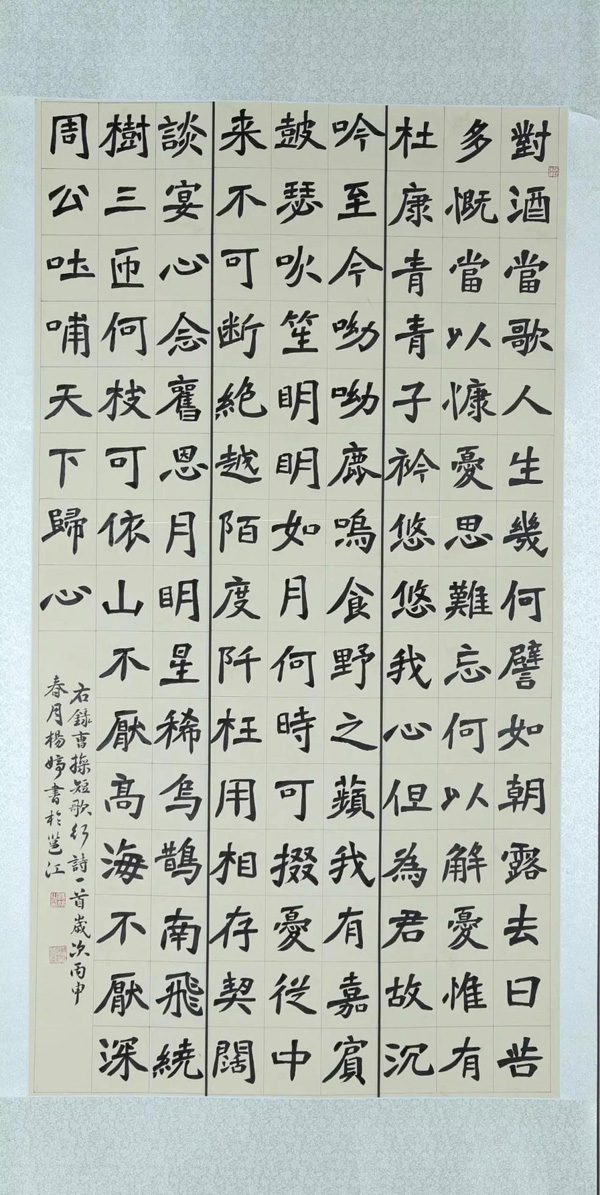 對酒當歌人生幾何譬如朝露去日苦
多慨當以慷憂思難忘何以解憂惟有
杜康青青子衿悠悠我心但為君故沉
吟至今呦呦鹿鳴食野之蘋我有嘉賓
鼓瑟吹笙明明如月何時可掇憂從中
来不可断絶越陌度阡枉用相存契闊
談宴心念舊恩月明星稀烏鵲南飛繞
樹三匝何枝可依山不厭高海不厭深
周公吐哺天下歸心
右錄曹操短歌行詩一首歲次丙申
春月楊婷書於邕江